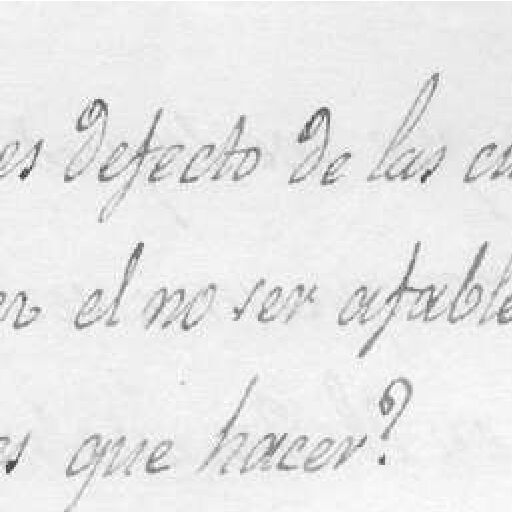 es defecto de las cu
er el no ser afable
es que hacer?